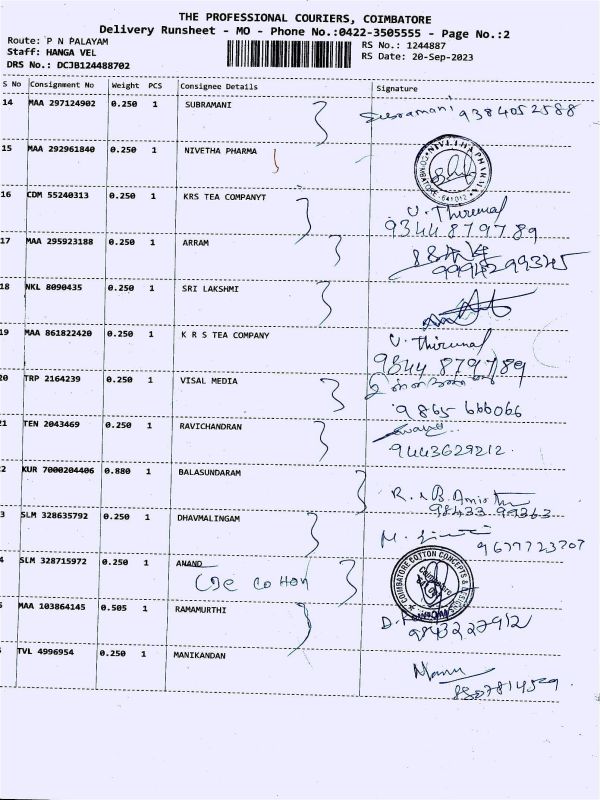 THE PROFESSIONAL COURIERS, COIMBATORE
Delivery Runsheet - MO - Phone No.:0422-3505555 - Page No.:2
Route: P N PALAYAM
RS No.: 1244887
Staff: HANGA VEL
RS Date: 20-Sep-2023
DRS No.: DCJB124488702
S No Consignment No Weight PCS Consignee Details Signature
14 MAA 297124902 0.250 1 SUBRAMANI Subramani 9384052588
15 MAA 292961840 0.250 1 NIVETHA PHARMA NIVETHA PHARMA COIMBATORE - 641012
16 CDM 55240313 0.250 1 KRS TEA COMPANYT V. Thirumal
9344879789
17 MAA 295923188 0.250 1 ARRAM
9994299345
18 NKL 8090435 0.250 1 SRI LAKSHMI
19 MAA 861822420 0.250 1 K R S TEA COMPANY V. Thirumal
9344 879789
20 TRP 2164239 0.250 1 VISAL MEDIA
9865 666066
21 TEN 2043469 0.250 1 RAVICHANDRAN
9443629212
2 KUR 7000204406 0.880 1 BALASUNDARAM
98433 99363
3 SLM 328635792 0.250 1 DHAVMALINGAM M.
9677723707
4 SLM 328715972 0.250 1 ANAND COIMBATORE COTTON CONCEPTS &
CDE COTTON
5 MAA 103864145 0.505 1 RAMAMURTHI
9843227912
TVL 4996954 0.250 1 MANIKANDAN Manu
8807814579